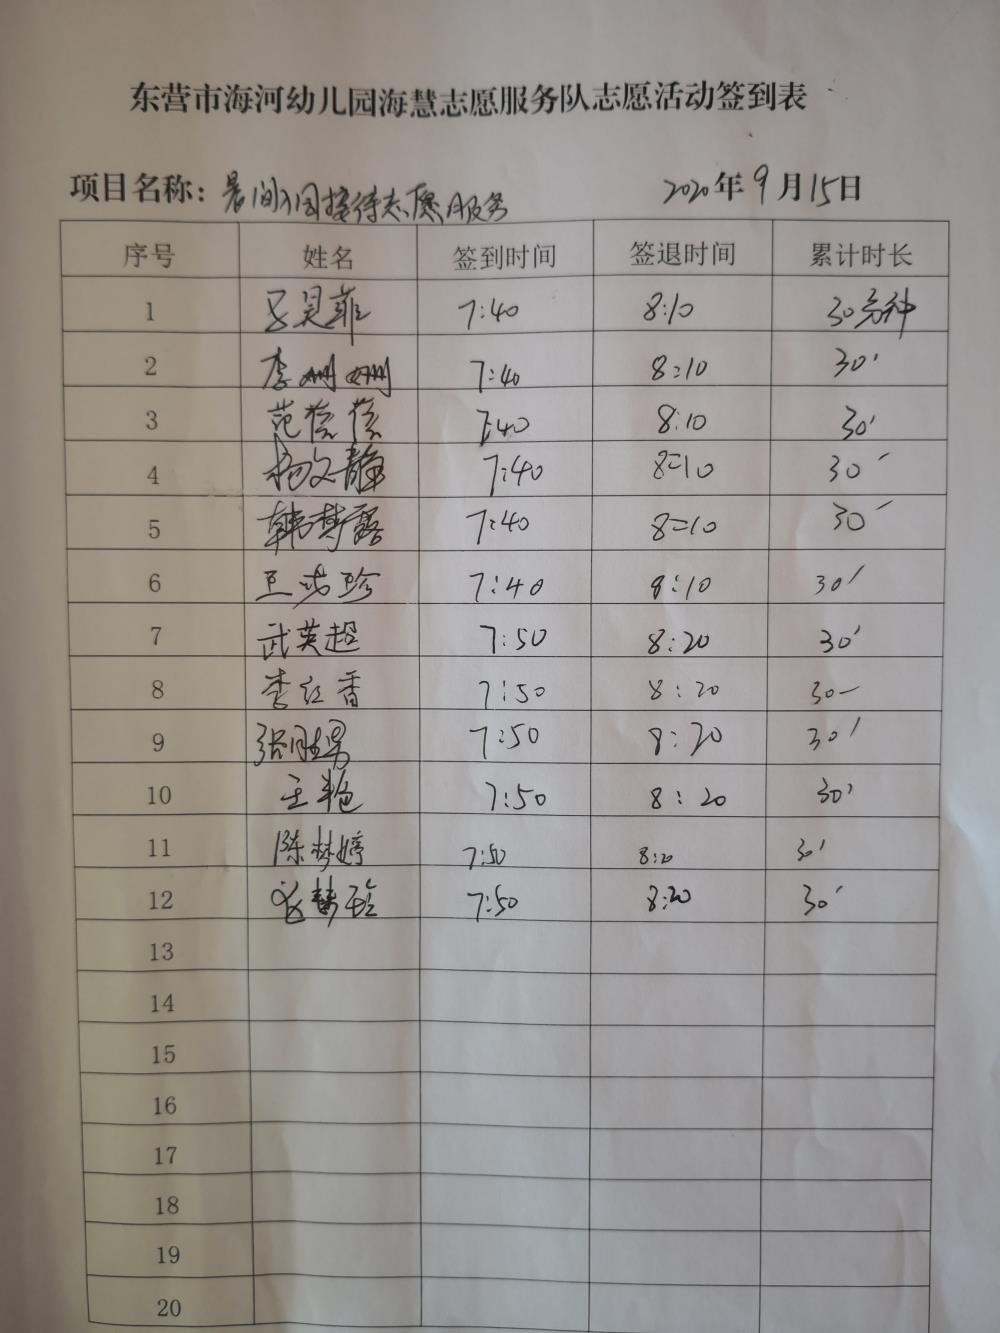 东营市海河幼儿园海慧志愿服务队志愿活动签到表
项目名称：晨间入园接待志愿服务 2020年9月15日
序号 姓名 签到时间 签退时间 累计时长
1 7:40 8:10 30分钟
2 李姗姗 7:40 8:10 30'
3 范蓓蓓 7:40 8:10 30'
4 杨文静 7:40 8:10 30'
5 韩梦露 7:40 8:10 30'
6 7:40 8:10 30'
7 武英超 7:50 8:20 30'
8 李红香 7:50 8:20 30'
9 张胜男 7:50 8:20 30'
10 王艳 7:50 8:20 30'
11 陈梦婷 7:50 8:20 30'
12 7:50 8:20 30'
13
14
15
16
17
18
19
20